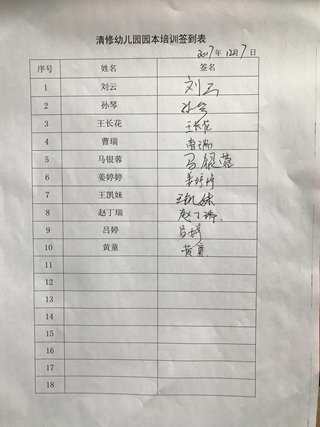 清修幼儿园园本培训签到表
2017年 12月 7日
序号 姓名 签名
1 刘云 刘云
2 孙琴 孙琴
3 王长花 王长花
4 曹瑞 曹瑞
5 马银蓉 马银蓉
6 姜婷婷 姜婷婷
7 王凯妹 王凯妹
8 赵丁瑞 赵丁瑞
9 吕婷 吕婷
10 黄童 黄童
11
12
13
14
15
16
17
18